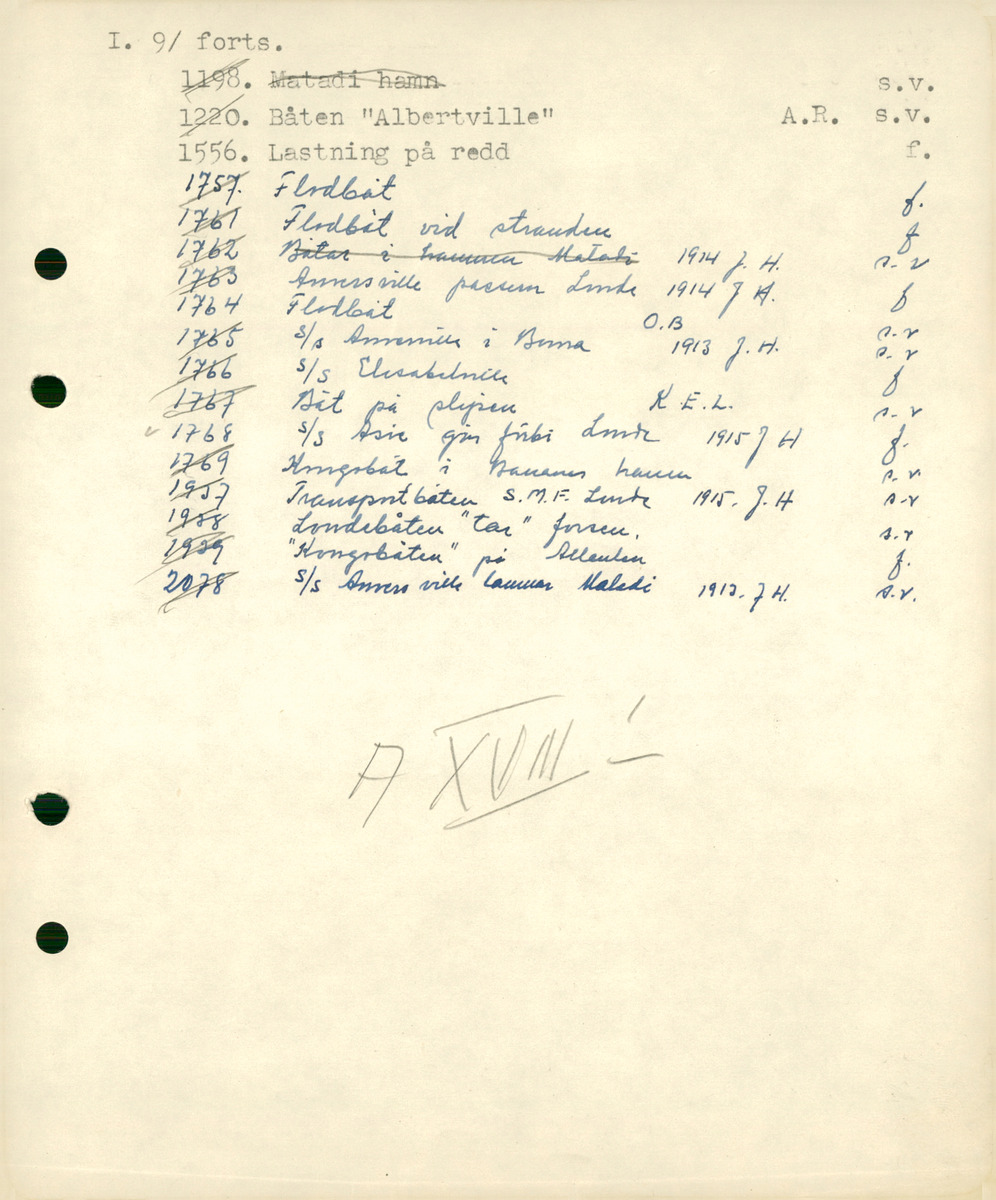 I. 9/ forts.
1198. Matadi hamn s.v.
1220. Båten "Albertville" A.R. s.v.
1556. Lastning på redd f.
1757. Flodbåt f.
1761 Flodbåt vid stranden f
1762 Båtar i hamnen Matadi 1914 J. H. s. v
1763 Anversville passerar Londe 1914 J H. f
1764 Flodbåt O.B s.v
1765 s/s Anversville i Boma 1913 J. H. s. v
1766 s/s Elisabethville f
1767 Båt på slipen K. E. L. s. v
1768 s/s Asie går förbi Londe 1915 J H f.
1769 Kongobåt i Bananas hamn s. v.
1957 Transportbåten S.M.F. Londe 1915. J. H s.v
1958 Londebåten "tar" forsen. s.v
1959 "Kongobåten" på Atlanten f.
2078 s/s Anversville lämnar Matadi 1913. J H. s.v.
A XVIII